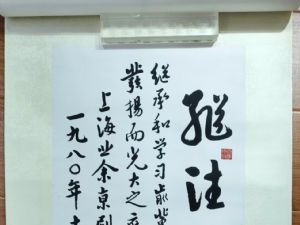 继往
继承和学习前辈
发扬而光大之
上海业余京剧
一九八〇年十